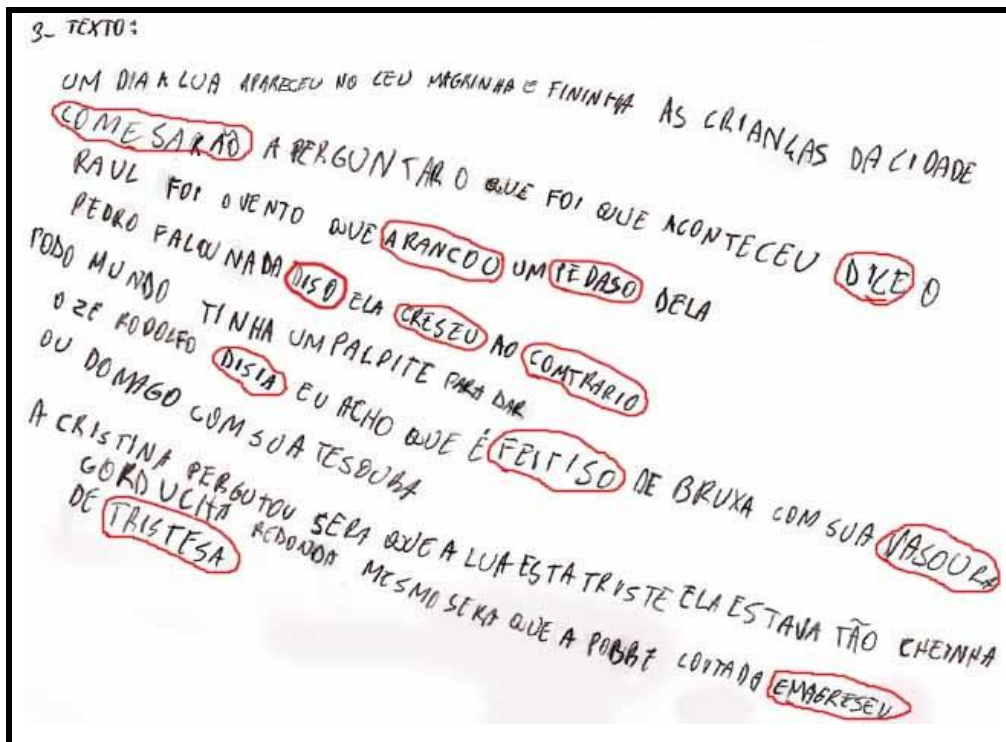 3- TEXTO:
UM DIA A LUA APARECEU NO CEU MAGRINHA E FININHA AS CRIANÇAS DA CIDADE
COMESARÃO A PERGUNTAR O QUE FOI QUE ACONTECEU DICE O
RAUL FOI O VENTO QUE ARANCOU UM PEDASO DELA
PEDRO FALOU NADA DISO ELA CRESEU AO COMTRARIO
TODO MUNDO TINHA UM PALPITE PARA DAR
O ZÉ RODOLFO DISIA EU ACHO QUE É FEITISO DE BRUXA COM SUA VASOURA
OU DO MAGO COM SUA TESOURA
A CRISTINA PERGUTOU SERA QUE A LUA ESTA TRISTE ELA ESTAVA TÃO CHEINHA
GORDUCHA REDONDA MESMO SERA QUE A POBRE COITADA EMAGRESEU
DE TRISTESA